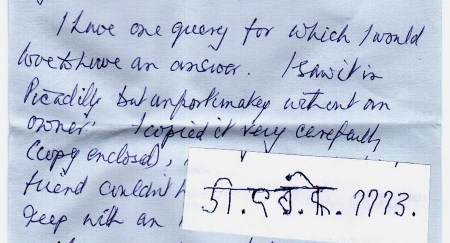 I have one query for which I would
love to have an answer. I saw it in
Picadilly but unfortunately without an
owner. I copied it very carefully
(copy enclosed),
friend couldn't
keep with an
डी. के. 7773.